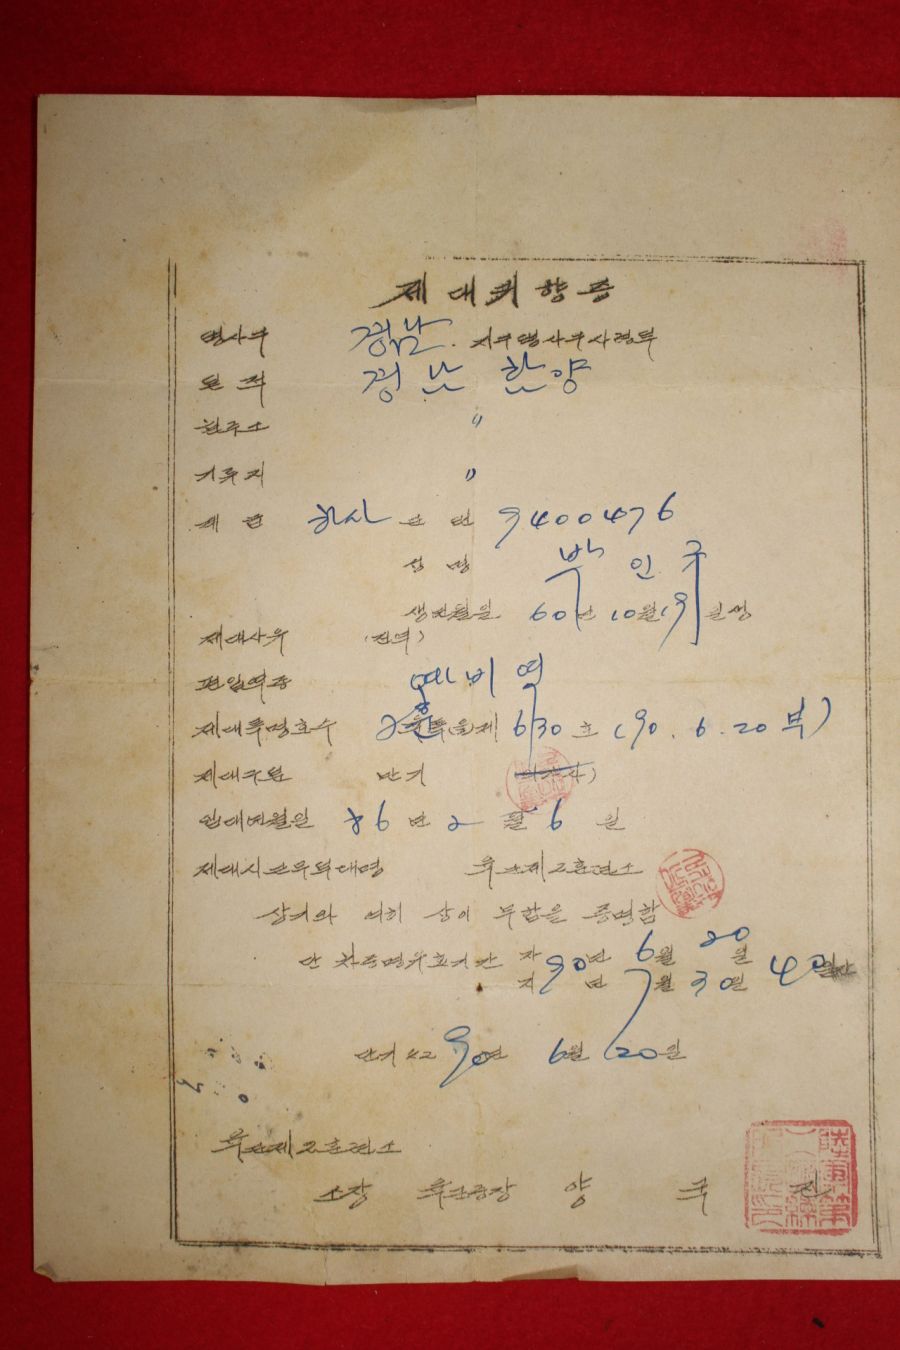 제대귀향증
병사구 경남 지구병사구사령부
본적 경남 함양
원주소 〃
기류지 〃
계급 하사 군번 9400476
성명 박인국
생년월일 60년 10월 19일생
제대사유 (전역)
편입역종 예비역
제대특명호수 2훈특(을)제 630호 (90.6.20부)
제대구분 만기
입대년월일 86년 2월 6일
제대시근무부대명 육군제2훈련소
상기와 여히 상이 무함을 증명함
단 차증명유효기간 자 90년 6월 20일
지 90년 7월 30일 40일간
단기 42 90년 6월 20일
육군제2훈련소
소장 육군중장 양국진